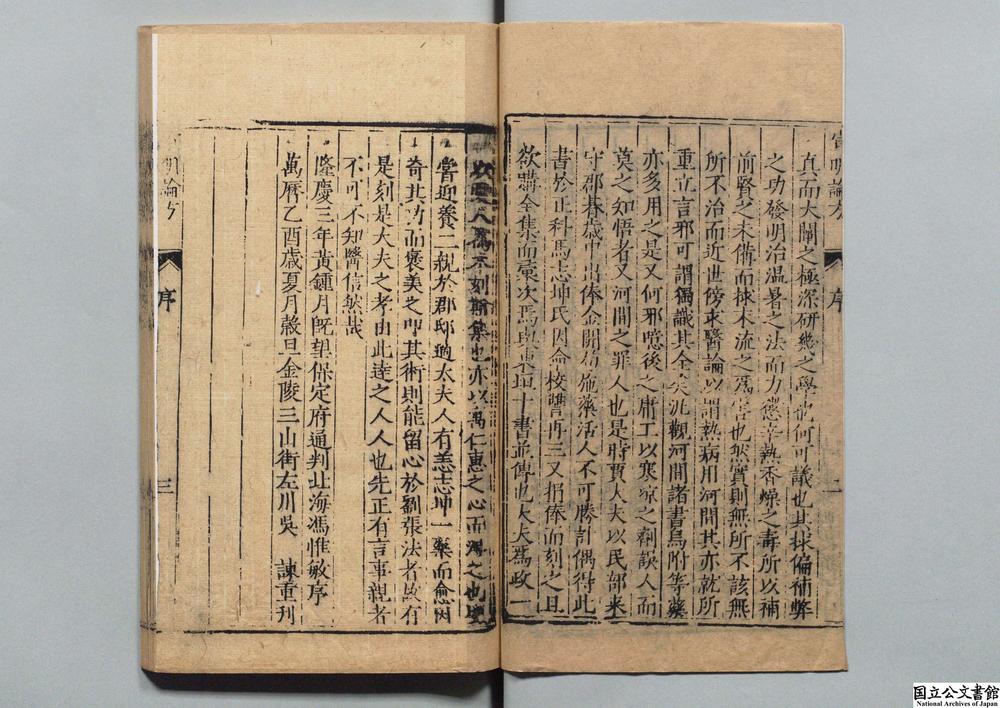 宣明論方
序
二
真而大闡之極深研幾之學也何可議也其採偏補弊
之功發明治温暑之法而力懲辛熱香燥之毒所以補
前賢之未備而捄末流之為害也然實則無所不該無
所不治而近世傍求醫論以謂熱病用河間其亦就所
重立言邪可謂獨識其全矣泚觀河間諸書烏附等藥
亦多用之是又何邪噫後之庸工以寒凉之劑誤人而
莫之知悟者又河間之罪人也是時賈大夫以民部来
守郡朞歳中出俸金開局施藥活人不可勝計偶得此
書於正科馬志坤氏因命校讐再三又捐俸而刻之且
欲購全集而彚次焉與東垣十書並傳也大夫爲政一
以愛人爲本刻斯集也亦以寓仁惠之心而溥之也
嘗迎養二親於郡邸適太夫人有恙志坤一藥而愈因
奇其功而褒美之叩其術則能留心於劉張法者故有
是刻是大夫之孝由此達之人人也先正有言事親者
不可不知醫信然哉
隆慶三年黄鍾月旣望保定府通判北海馮惟敏序
萬曆乙酉歲夏月穀旦金陵三山街左川吳 諫重刊
明論方
序
三
国立公文書館
National Archives of Japan